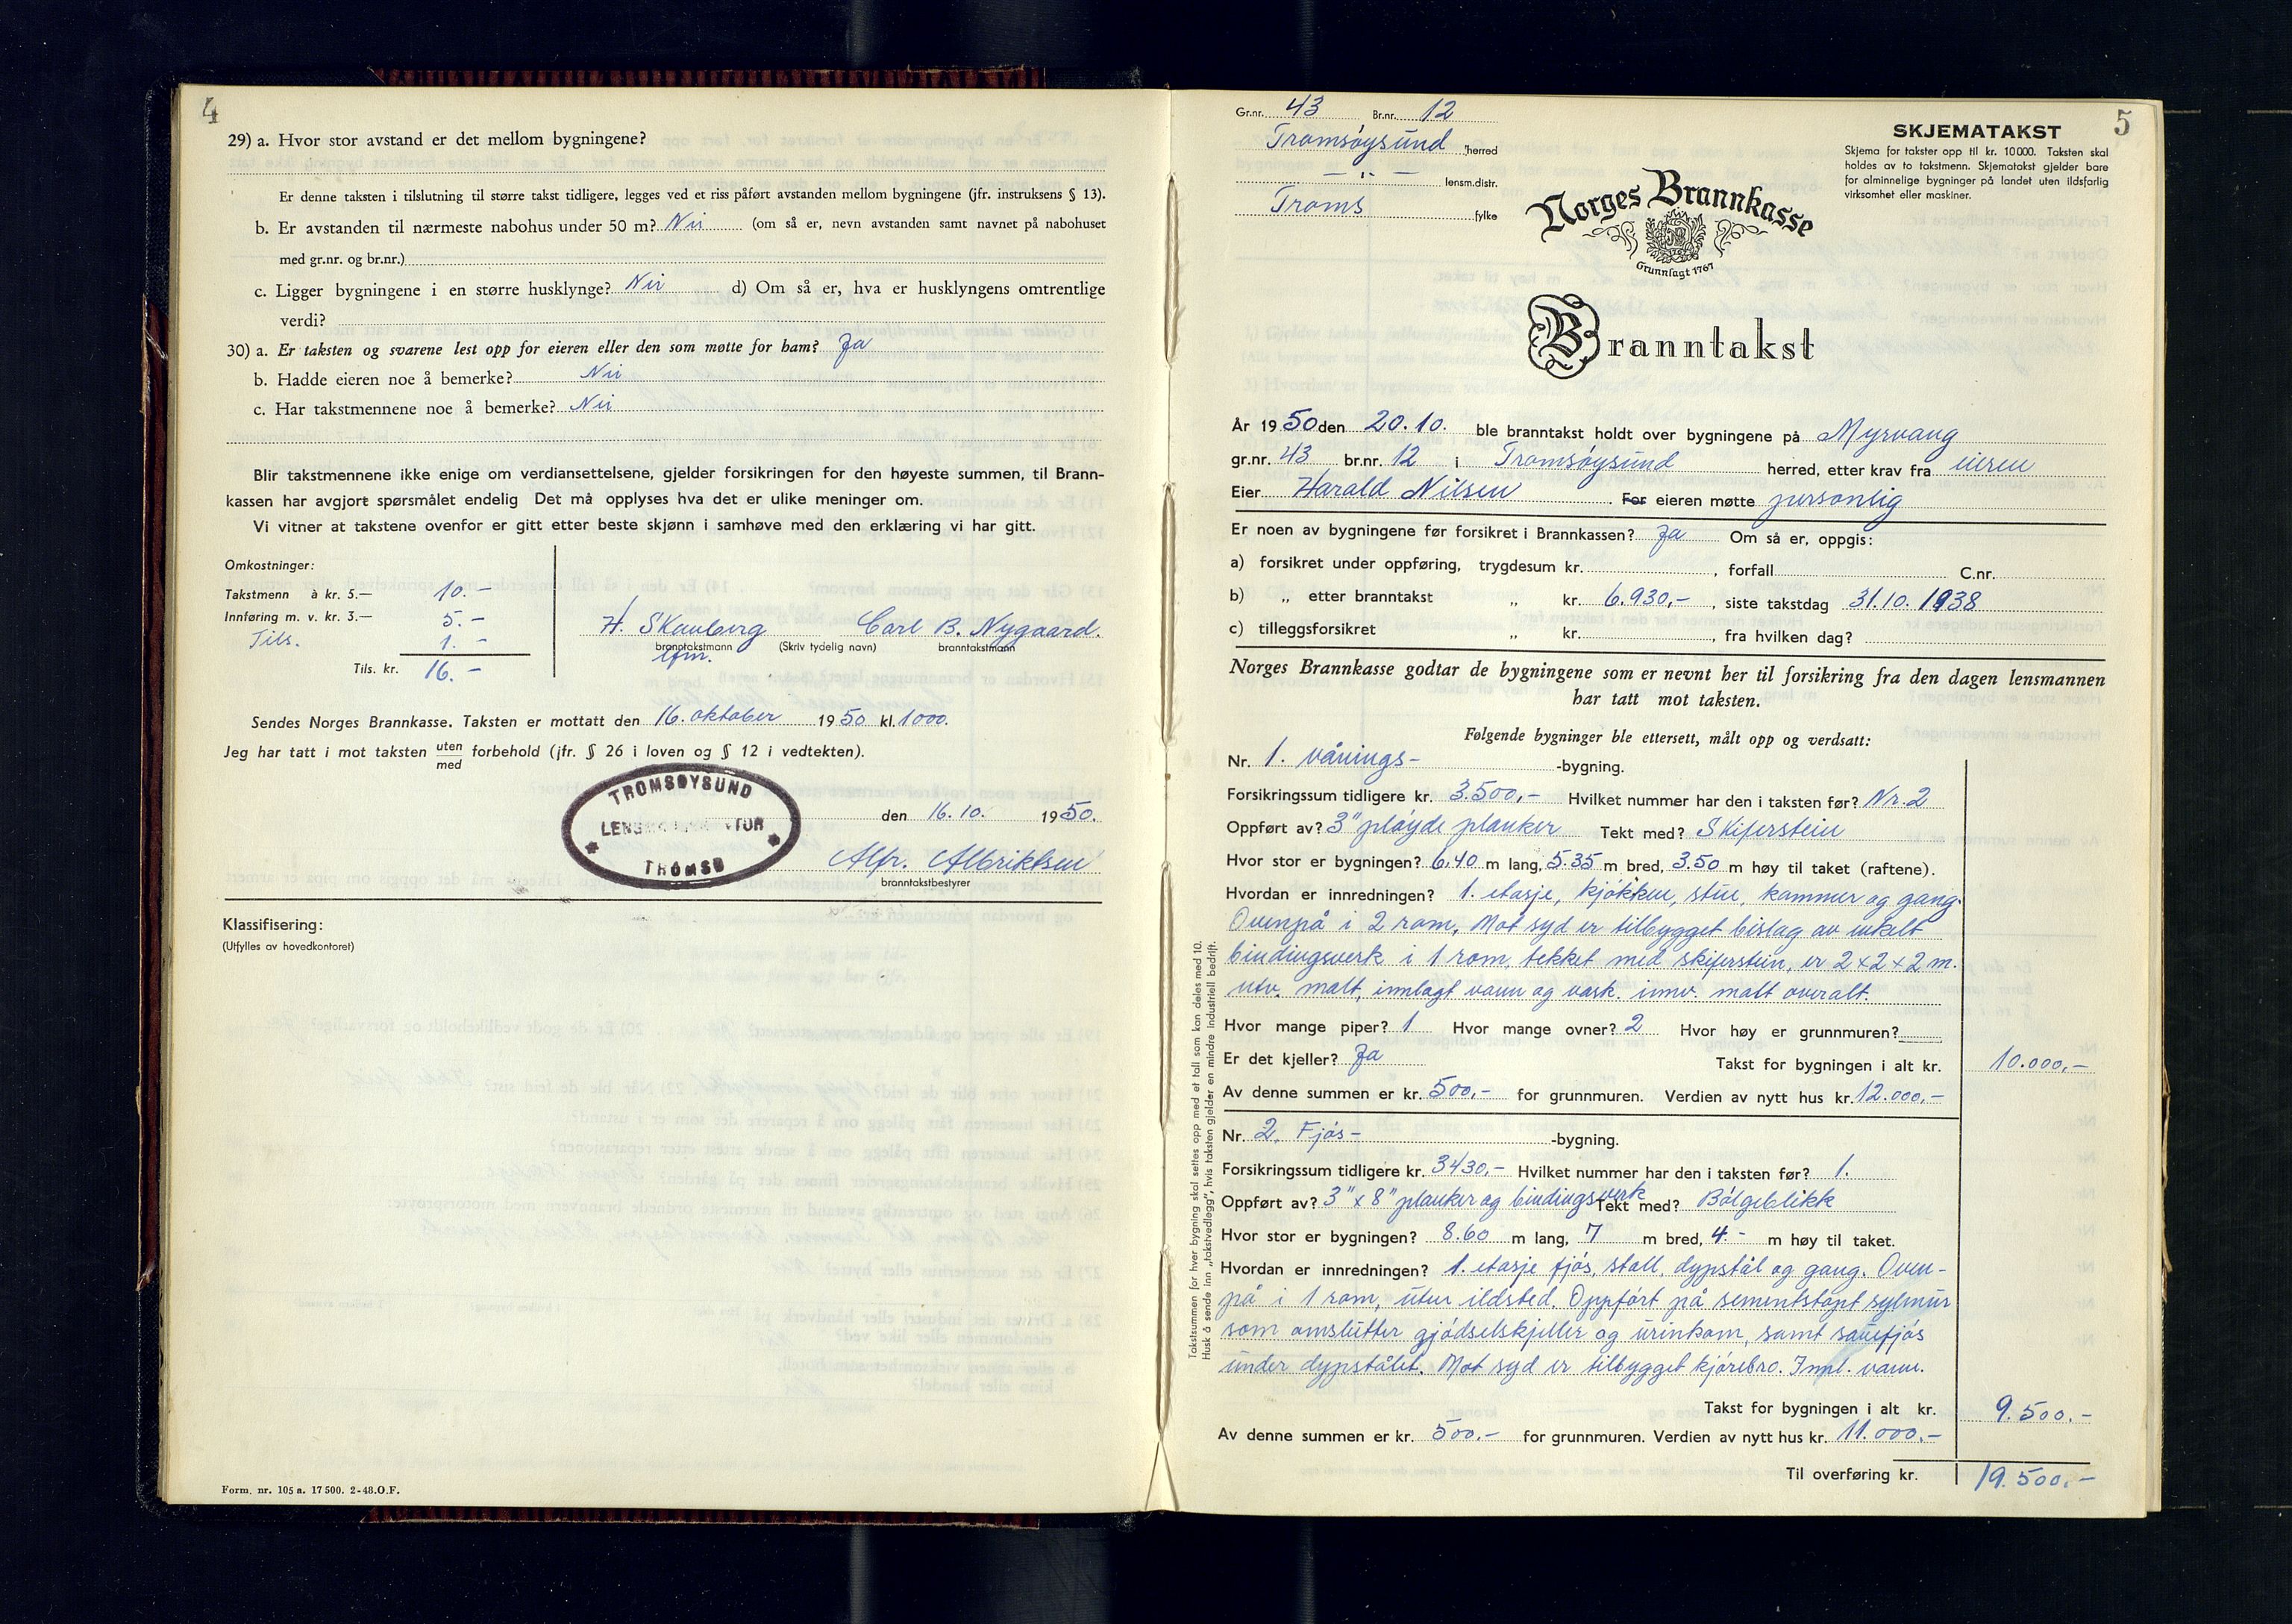 4
29) a. Hvor stor avstand er det mellom bygningene?
Er denne taksten i tilslutning til større takst tidligere, legges ved et riss påført avstanden mellom bygningene (jfr. instruksens § 13).
b. Er avstanden til nærmeste nabohus under 50 m? Nei (om så er, nevn avstanden samt navnet på nabohuset
med gr.nr. og br.nr.)
c. Ligger bygningene i en større husklynge? Nei d) Om så er, hva er husklyngens omtrentlige
verdi?
30) a. Er taksten og svarene lest opp for eieren eller den som møtte for ham? Ja
b. Hadde eieren noe å bemerke? Nei
c. Har takstmennene noe å bemerke? Nei
Blir takstmennene ikke enige om verdiansettelsene, gjelder forsikringen for den høyeste summen, til Brann-
kassen har avgjort spørsmålet endelig Det må opplyses hva det er ulike meninger om.
Vi vitner at takstene ovenfor er gitt etter beste skjønn i samhøve med den erklæring vi har gitt.
Omkostninger:
Takstmenn à kr. 5.— 10.-
Innføring m. v. kr. 3.— 5.-
Tils. 1.-
Tils. kr. 16.-
H. Skauberg Carl B. Nygaard.
branntakstmann (Skriv tydelig navn) branntakstmann
lfm.
Sendes Norges Brannkasse. Taksten er mottatt den 16. oktober 1950 kl. 1000.
Jeg har tatt i mot taksten uten/med forbehold (jfr. § 26 i loven og § 12 i vedtekten).
TROMSØYSUND
TROMSØ
den 16.10. 1950.
Alfr. Albriktsen
branntakstbestyrer
Klassifisering:
(Utfylles av hovedkontoret)
Form. nr. 105 a. 17 500. 2-48. O.F.
5
Gr.nr. 43 Br.nr. 12
Tromsøysund herred
— " — lensm.distr.
Troms fylke
SKJEMATAKST
Skjema for takster opp til kr. 10 000. Taksten skal
holdes av to takstmenn. Skjematakst gjelder bare
for alminnelige bygninger på landet uten ildsfarlig
virksomhet eller maskiner.
Norges Brannkasse
Grunnlagt 1767
Branntakst
År 1950 den 20.10. ble branntakst holdt over bygningene på Myrvang
gr.nr. 43 br.nr. 12 i Tromsøysund herred, etter krav fra eieren
Eier Harald Nilsen. For eieren møtte personlig
Er noen av bygningene før forsikret i Brannkassen? Ja Om så er, oppgis:
a) forsikret under oppføring, trygdesum kr. , forfall C.nr.
b) „ etter branntakst „ kr. 6.930,- , siste takstdag 31.10. 1938
c) tilleggsforsikret „ kr. , fra hvilken dag?
Norges Brannkasse godtar de bygningene som er nevnt her til forsikring fra den dagen lensmannen
har tatt mot taksten.
Følgende bygninger ble ettersett, målt opp og verdsatt:
Nr. 1. vånings- -bygning.
Forsikringssum tidligere kr. 3.500,- Hvilket nummer har den i taksten før? Nr. 2
Oppført av? 3" pløyde planker Tekt med? Skiferstein
Hvor stor er bygningen? 6.40 m lang, 5.35 m bred, 3.50 m høy til taket (raftene).
Hvordan er innredningen? 1. etasje, kjøkken, stue, kammer og gang.
Ovenpå i 2 rom, Mot syd er tilbygget bislag av enkelt
bindingsverk i 1 rom, tekket med skiferstein, er 2 x 2 x 2 m.
utv. malt, innlagt vann og vask. innv. malt overalt.
Hvor mange piper? 1 Hvor mange ovner? 2 Hvor høy er grunnmuren?
Er det kjeller? Ja Takst for bygningen i alt kr. 10.000,-
Av denne summen er kr. 500,- for grunnmuren. Verdien av nytt hus kr. 12.000,-
Nr. 2. Fjøs- -bygning.
Forsikringssum tidligere kr. 3430,- Hvilket nummer har den i taksten før? 1.
Oppført av? 3" x 8" planker og bindingsverk Tekt med? Bølgeblikk
Hvor stor er bygningen? 8.60 m lang, 7 m bred, 4.- m høy til taket.
Hvordan er innredningen? 1. etasje fjøs, stall, dypstål og gang. Oven-
på i 1 rom, uten ildsted. Oppført på sementstøpt sylmur
som omslutter gjødselskjeller og urinkom, samt sauefjøs
under dypstålet. Mot syd er tilbygget kjørebro. Innl. vann.
Takst for bygningen i alt kr. 9.500.-
Av denne summen er kr. 500.- for grunnmuren. Verdien av nytt hus kr. 11.000,-
Til overføring kr. 19.500,-
Takstsummen for hver bygning skal settes opp med et tall som kan deles med 10.
Husk å sende inn „takstvedlegg", hvis taksten gjelder en mindre industriell bedrift.